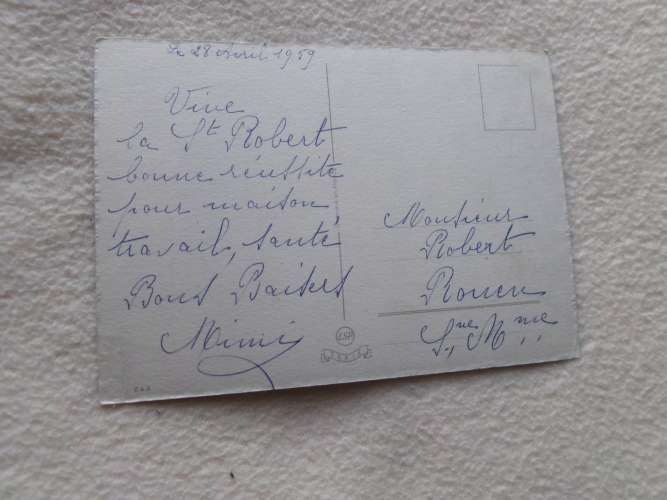 Le 28 Avril 1959
Vive
la St Robert
bonne réussite
pour maison
travail, santé
Bons Baisers
Mimi
Monsieur
Robert
Rouen
S.Ine Mme